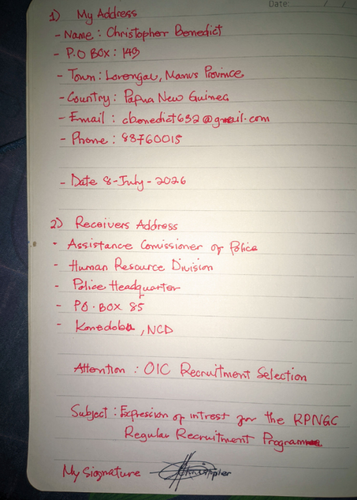 Date: / /
1) My Address
- Name : Christopher Benedict
- P.O BOX : 149
- Town : Lorengau, Manus Province
- Country : Papua New Guinea
- Email : cbenedict632@gmail.com
- Phone : 83760015
- Date 8-July-2026
2) Receivers Address
- Assistance Comissioner of Police
- Human Resource Division
- Police Headquarter
- PO.BOX 85
- Konedobu, NCD
Attention : OIC Recruitment Selection
Subject : Expression of intrest for the RPNGC
Regular Recruitment Programme
My Siognature